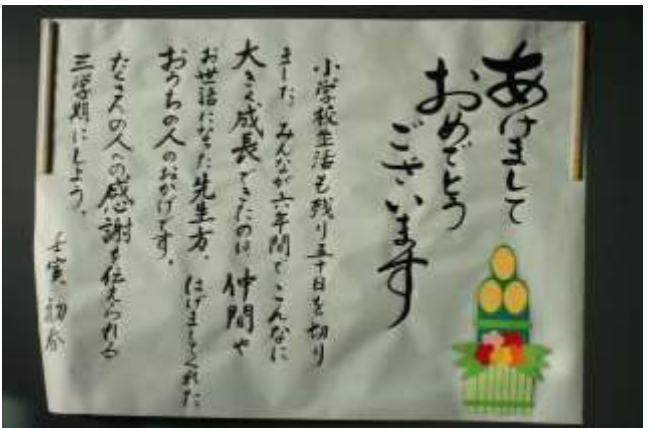 あけまして
おめでとう
ございます
小学校生活も残り五十日を切り
ました。みんなが六年間でこんなに
大きく成長できたのは、仲間や
お世話になった先生方、はげましてくれた
おうちの人のおかげです。
たくさんの人への感謝を伝えられる
三学期にしよう。
壬寅 初春